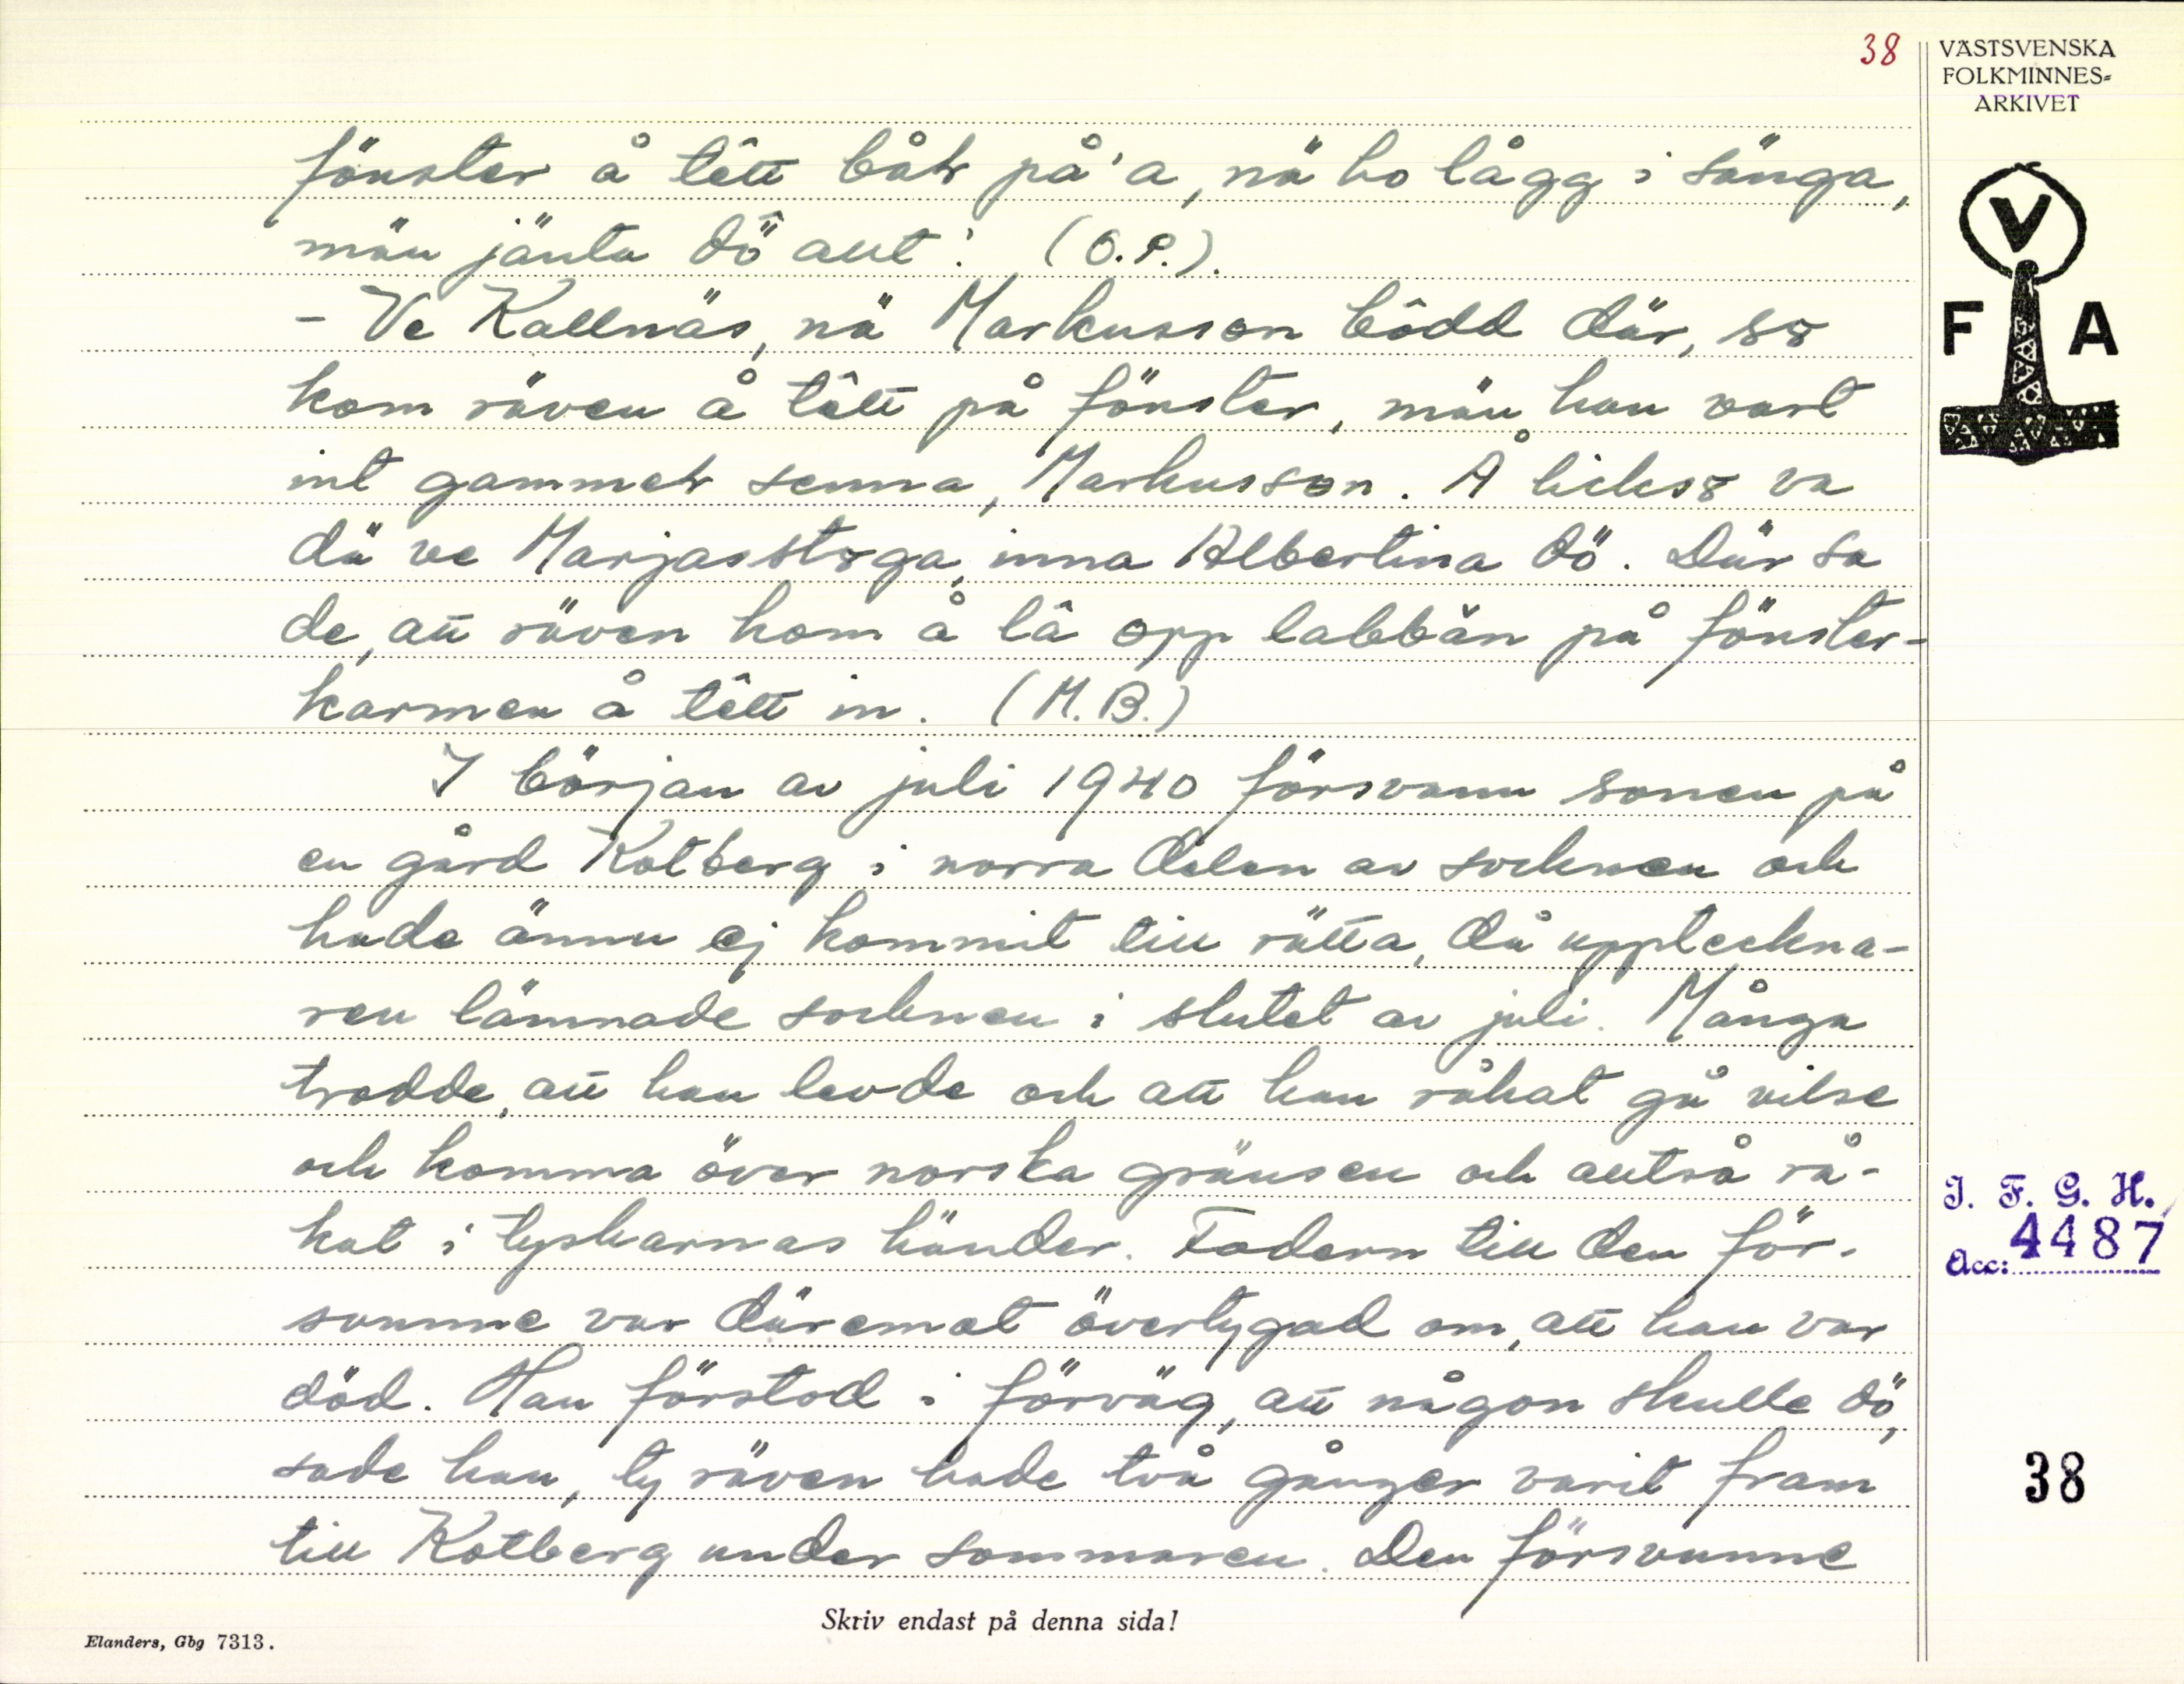 38
VÄSTSVENSKA
FOLKMINNES-
ARKIVET
V
F A
fönster å têtt bår på'a, nä ho lågg i sänga,
män jänta dö ant! (O.P.).
- Ve Kallnäs, nä Markusson bôdd där, so
kom räven å têtt på fönster, män han vart
int gammer senna, Markusson. Å likso va
dä ve Marjasstoga, inna Albertina dö. Där sa
de, att räven kom å lâ opp labbän på fönster-
karmen å têtt in. (M.B.)
I början av juli 1940 försvann sonen på
en gård Kotberg i norra delen av socknen och
hade ännu ej kommit till rätta, då uppteckna-
ren lämnade socknen i slutet av juli. Många
trodde, att han levde och att han råkat gå vilse
och komma över norska gränsen och antså rå-
kat i tyskarnas händer. Fadern till den för-
svunne var däremot övertygad om, att han var
död. Han förstod i förväg, att någon skulle dö,
sade han, ty räven hade två gånger varit fram
till Kotberg under sommaren. Den försvunne
I. F. G. H.
Acc: 4487
38
Skriv endast på denna sida!
Elanders, Gbg 7313.